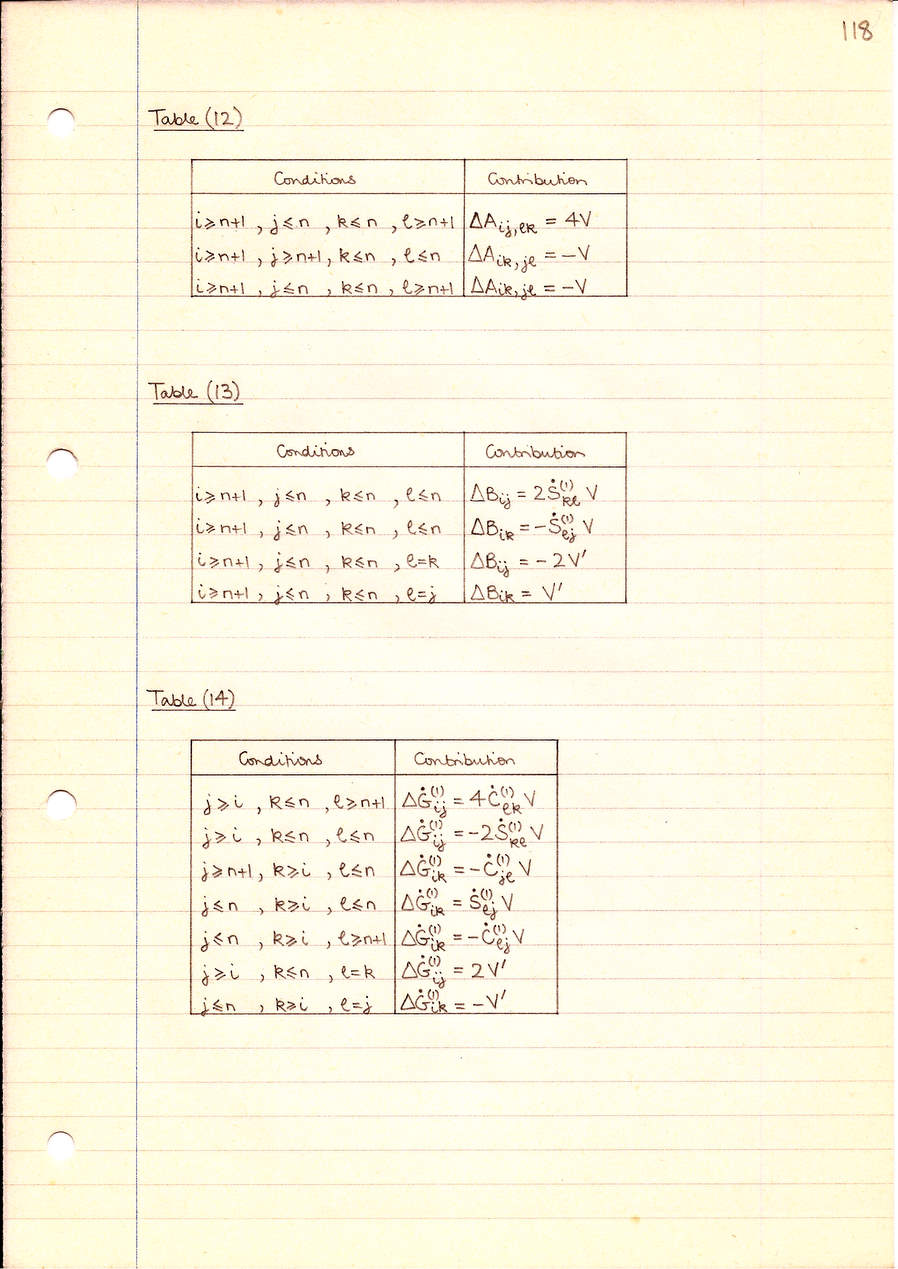 118
Table (12)
Conditions Contribution
i≥n+1 , j≤n , k≤n , ℓ≥n+1 ΔA_{ij,ℓk} = 4V
i≥n+1 , j≥n+1, k≤n , ℓ≤n ΔA_{ik,jℓ} = -V
i≥n+1 , j≤n , k≤n , ℓ≥n+1 ΔA_{ik,jℓ} = -V
Table (13)
Conditions Contribution
i≥n+1 , j≤n , k≤n , ℓ≤n ΔB_{ij} = 2Ṡ^{(1)}_{kℓ} V
i≥n+1 , j≤n , k≤n , ℓ≤n ΔB_{ik} = -Ṡ^{(1)}_{ℓj} V
i≥n+1 , j≤n , k≤n , ℓ=k ΔB_{ij} = -2V'
i≥n+1 , j≤n , k≤n , ℓ=j ΔB_{ik} = V'
Table (14)
Conditions Contribution
j≥i , k≤n , ℓ≥n+1 ΔĠ^{(1)}_{ij} = 4Ċ^{(1)}_{ℓk} V
j≥i , k≤n , ℓ≤n ΔĠ^{(1)}_{ij} = -2Ṡ^{(1)}_{kℓ} V
j≥n+1, k≥i , ℓ≤n ΔĠ^{(1)}_{ik} = -Ċ^{(1)}_{jℓ} V
j≤n , k≥i , ℓ≤n ΔĠ^{(1)}_{ik} = Ṡ^{(1)}_{ℓj} V
j≤n , k≥i , ℓ≥n+1 ΔĠ^{(1)}_{ik} = -Ċ^{(1)}_{ℓj} V
j≥i , k≤n , ℓ=k ΔĠ^{(1)}_{ij} = 2V'
j≤n , k≥i , ℓ=j ΔĠ^{(1)}_{ik} = -V'